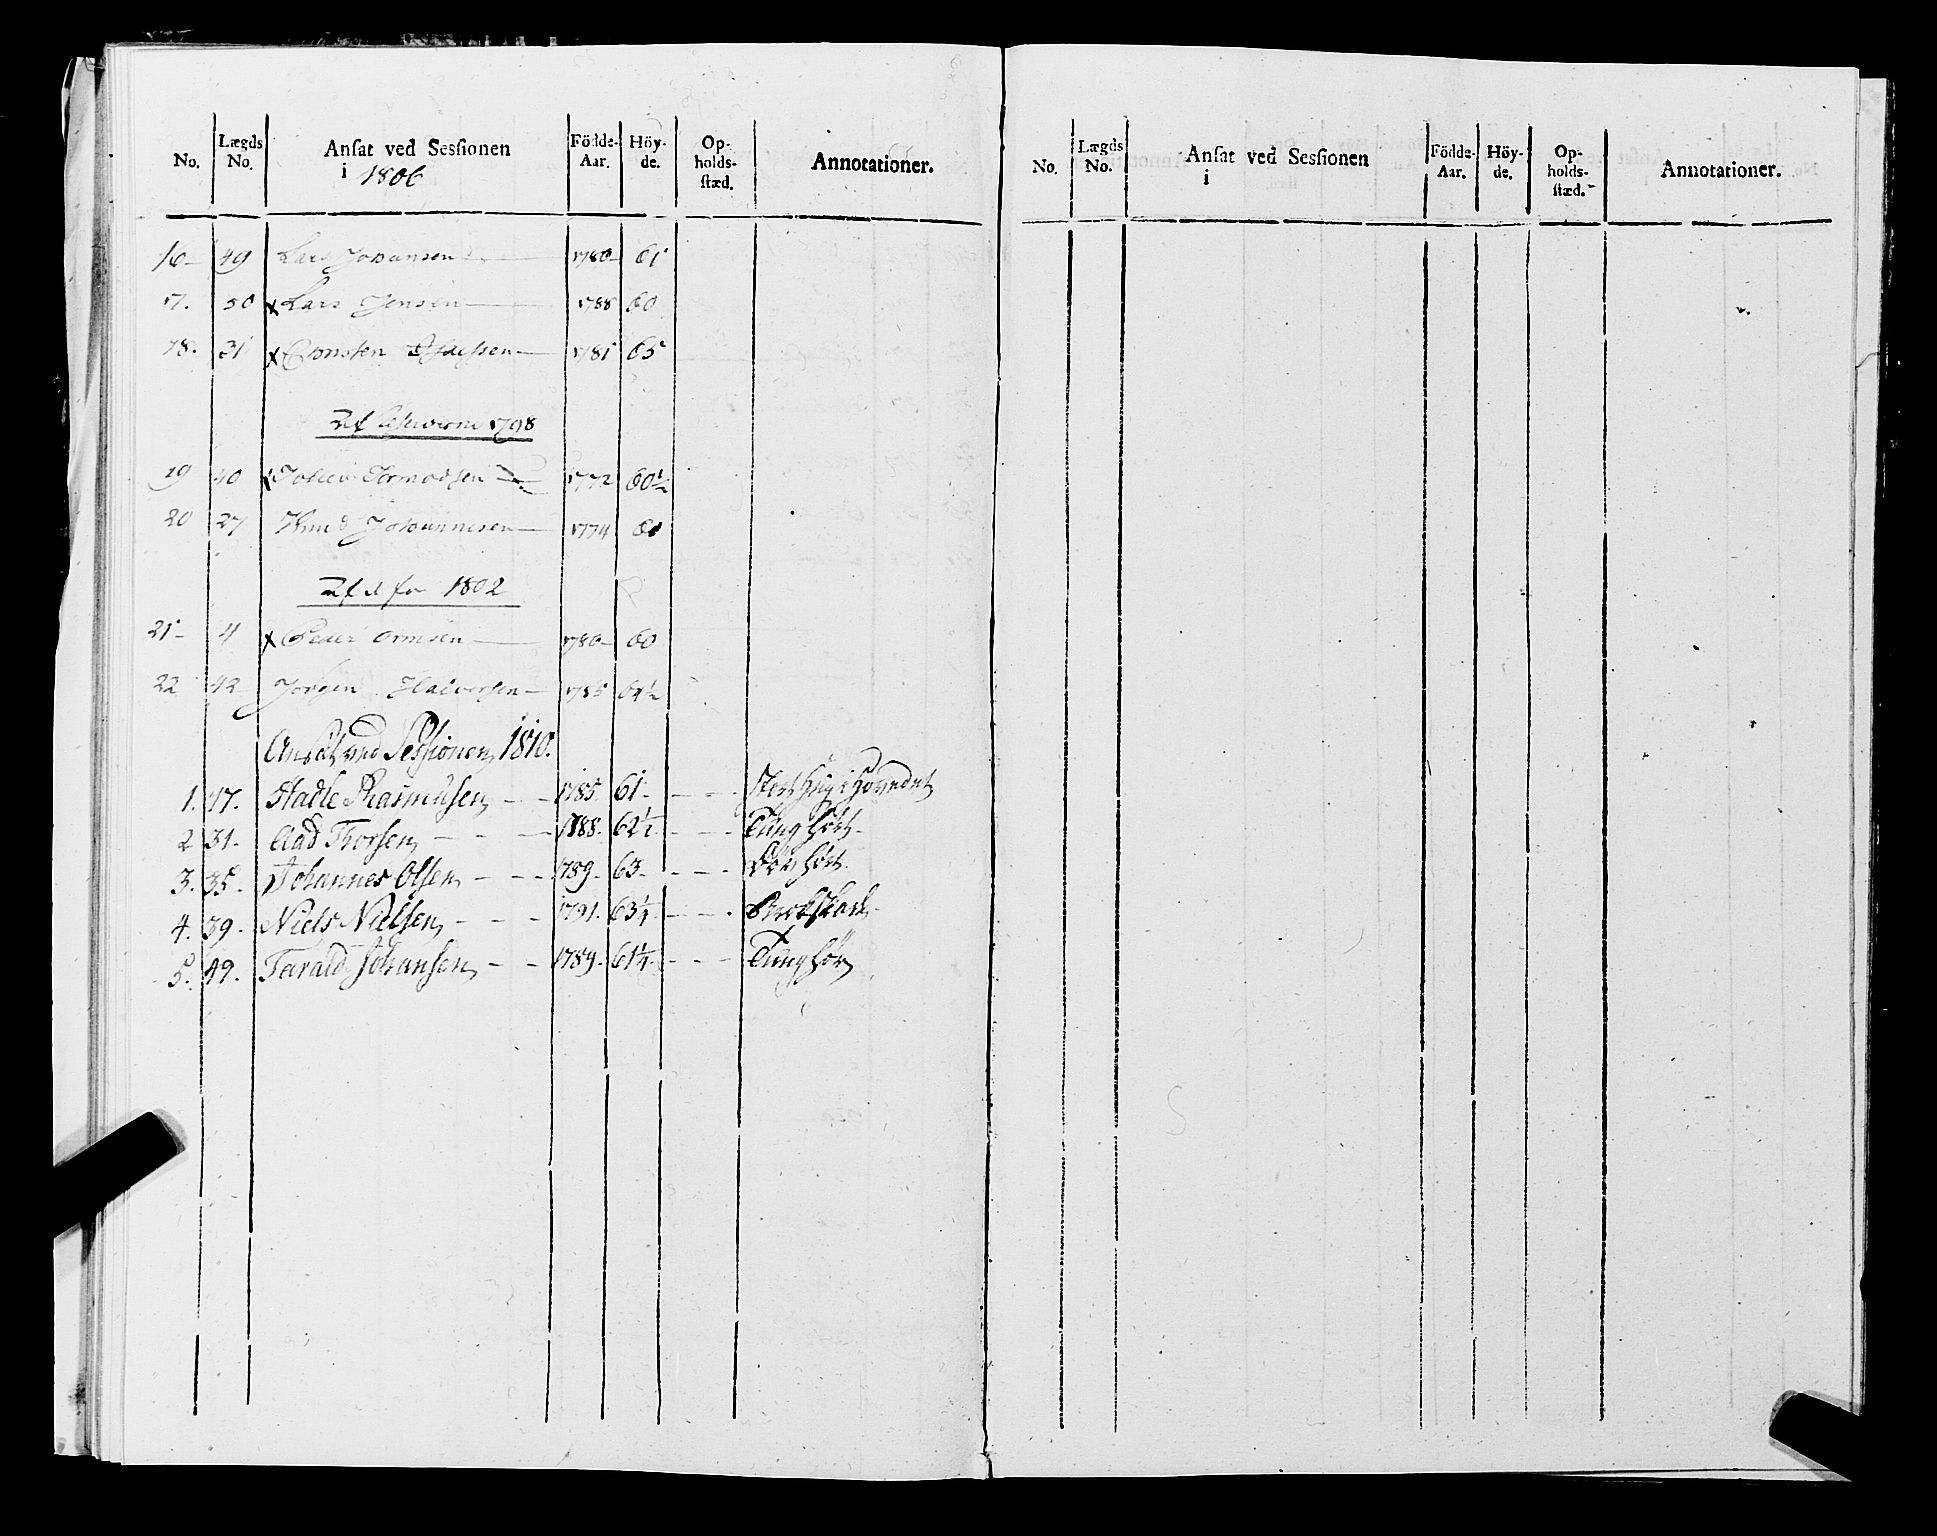 No. Lægds No. Ansat ved Sessionen i 1806 Födde-Aar. Höy-de. Op-holds-stæd. Annotationer.
16 49 Lars Johansen 1780 61
17. 50 x Lars Jensen 1788 60
18. 31 x 1781 65
Af 1798
19 40 Tormodsen 1772 60½
20 27 Knud Johannesen 1774
Af d for 1802
21 4 x Peder Ormsen 1780 60
22 42 Jörgen Halvorsen 1785 61½
Ansat ved Sessionen 1810.
1. 47. Rasmusen 1785 61 i Hovedet
2 31. Aad Thorsen 1788. 62½ Tunghört
3. 35. Johannes Olsen 1789. 63 Döv hört
4. 39. Niels Nielsen 1791. 63¼ Brokskade
5. 49. Tarald Johansen 1789. 61¼ Tunghör
No. Lægds No. Ansat ved Sessionen i Födde-Aar. Höy-de. Op-holds-stæd. Annotationer.